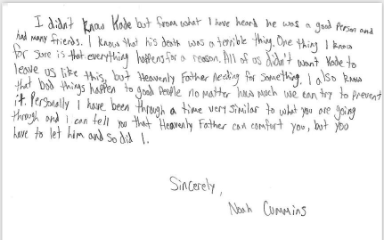 I didn't know Kade but from what I have heard he was a good person and
had many friends. I know that his death was a terrible thing. One thing I know
for sure is that everything happens for a reason. All of us didn't want Kade to
leave us like this, but Heavenly Father needing for something. I also know
that bad things happen to good people no matter how much we can try to prevent
it. Personally I have been through a time very similar to what you are going
through and I can tell you that Heavenly Father can comfort you, but you
have to let him and so did I.
Sincerely,
Noah Cummins